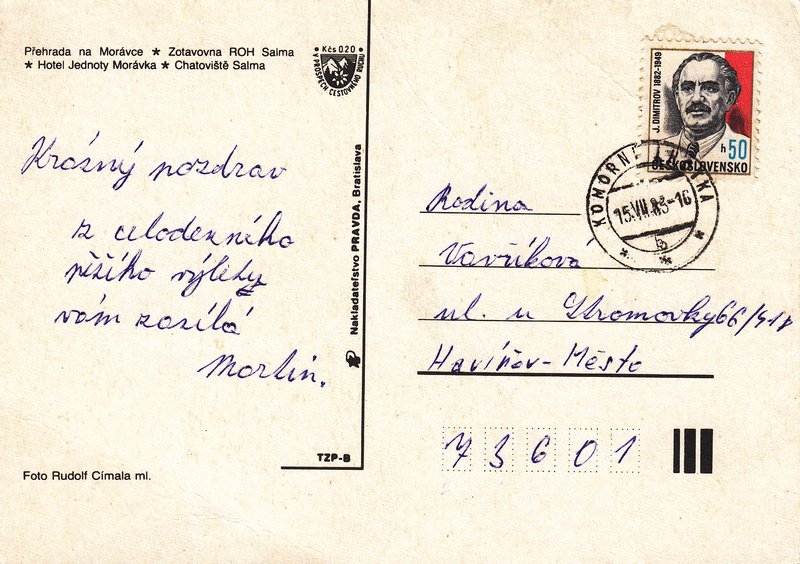 Přehrada na Morávce ★ Zotavovna ROH Salma
★ Hotel Jednoty Morávka ★ Chatoviště Salma
Kčs 0.20
V PROSPĚCH CESTOVNÉHO RUCHU
Krásný pozdrav
z celodenního
pěšího výletu
vám zasílá
Martin.
Foto Rudolf Címala ml.
Nakladatelství PRAVDA, Bratislava
TZP-B
J. DIMITROV 1882-1949
h 50
ČESKOSLOVENSKO
KOMORNÍ
15.VII.83-16
b
Rodina
Vavříková
ul. u Stromovky 66/
Havířov-Město
73601